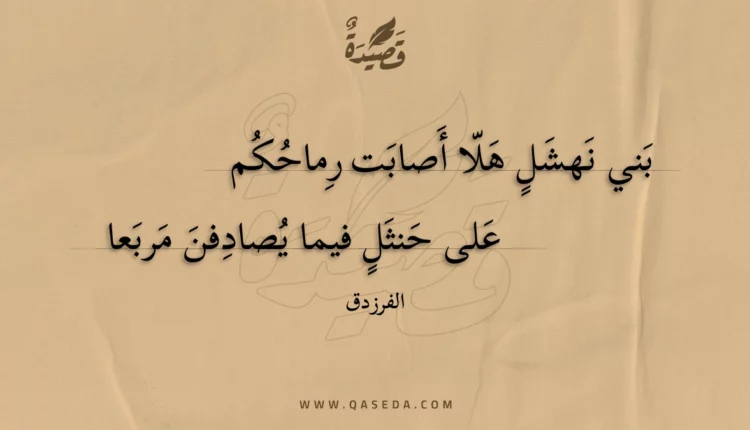 قَصِيْدَةٌ
بَني نَهشَلٍ هَلّا أَصابَت رِماحُكُم
عَلى حَنثَلٍ فيما يُصادِفنَ مَربَعا
الفرزدق
WWW.QASEDA.COM